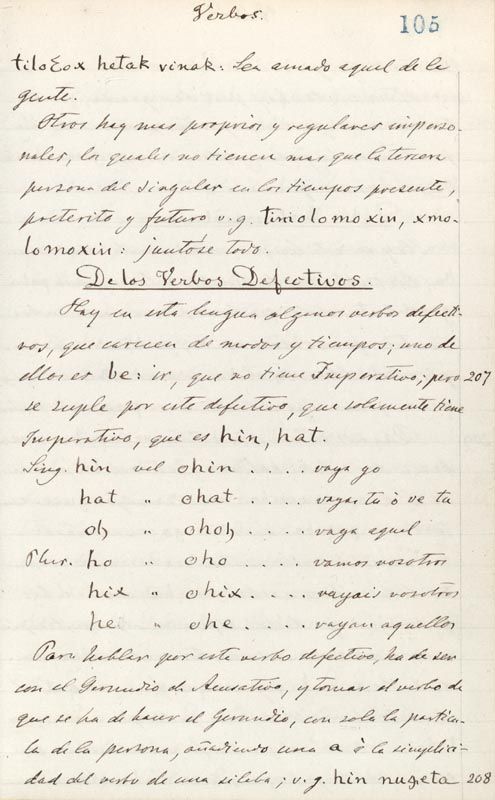 Verbos.
105
tiloɛox hetak vinak: Sea amado aquel de la
gente.
Otros hay mas proprios y regulares imperso-
nales, los quales no tienen mas que la tercera
persona del singular en los tiempos presente,
preterito y futuro v.g. timolomoxin, xmo-
lomoxin: juntóse todo.
De los Verbos Defectivos.
Hay en esta lengua algunos verbos defecti-
vos, que carecen de modos y tiempos; uno de
ellos es be: ir, que no tiene Imperativo; pero 207
se suple por este defectivo, que solamente tiene
Imperativo, que es hin, hat.
Sing. hin vel ohin .... vaya yo
hat " ohat .... vayas tu ò ve tu
oh " ohoh .... vaya aquel
Plur. ho " oho .... vamos nosotros
hix " ohix .... vayais vosotros
he " ohe .... vayan aquellos
Para hablar por este verbo defectivo, ha de ser
con el Gerundio de Acusativo, y tomar el verbo de
que se ha de hacer el Gerundio, con sola la particu-
la de la persona, añadiendo una a à la simplici-
dad del verbo de una silaba; v.g. hin nuɛeta 208